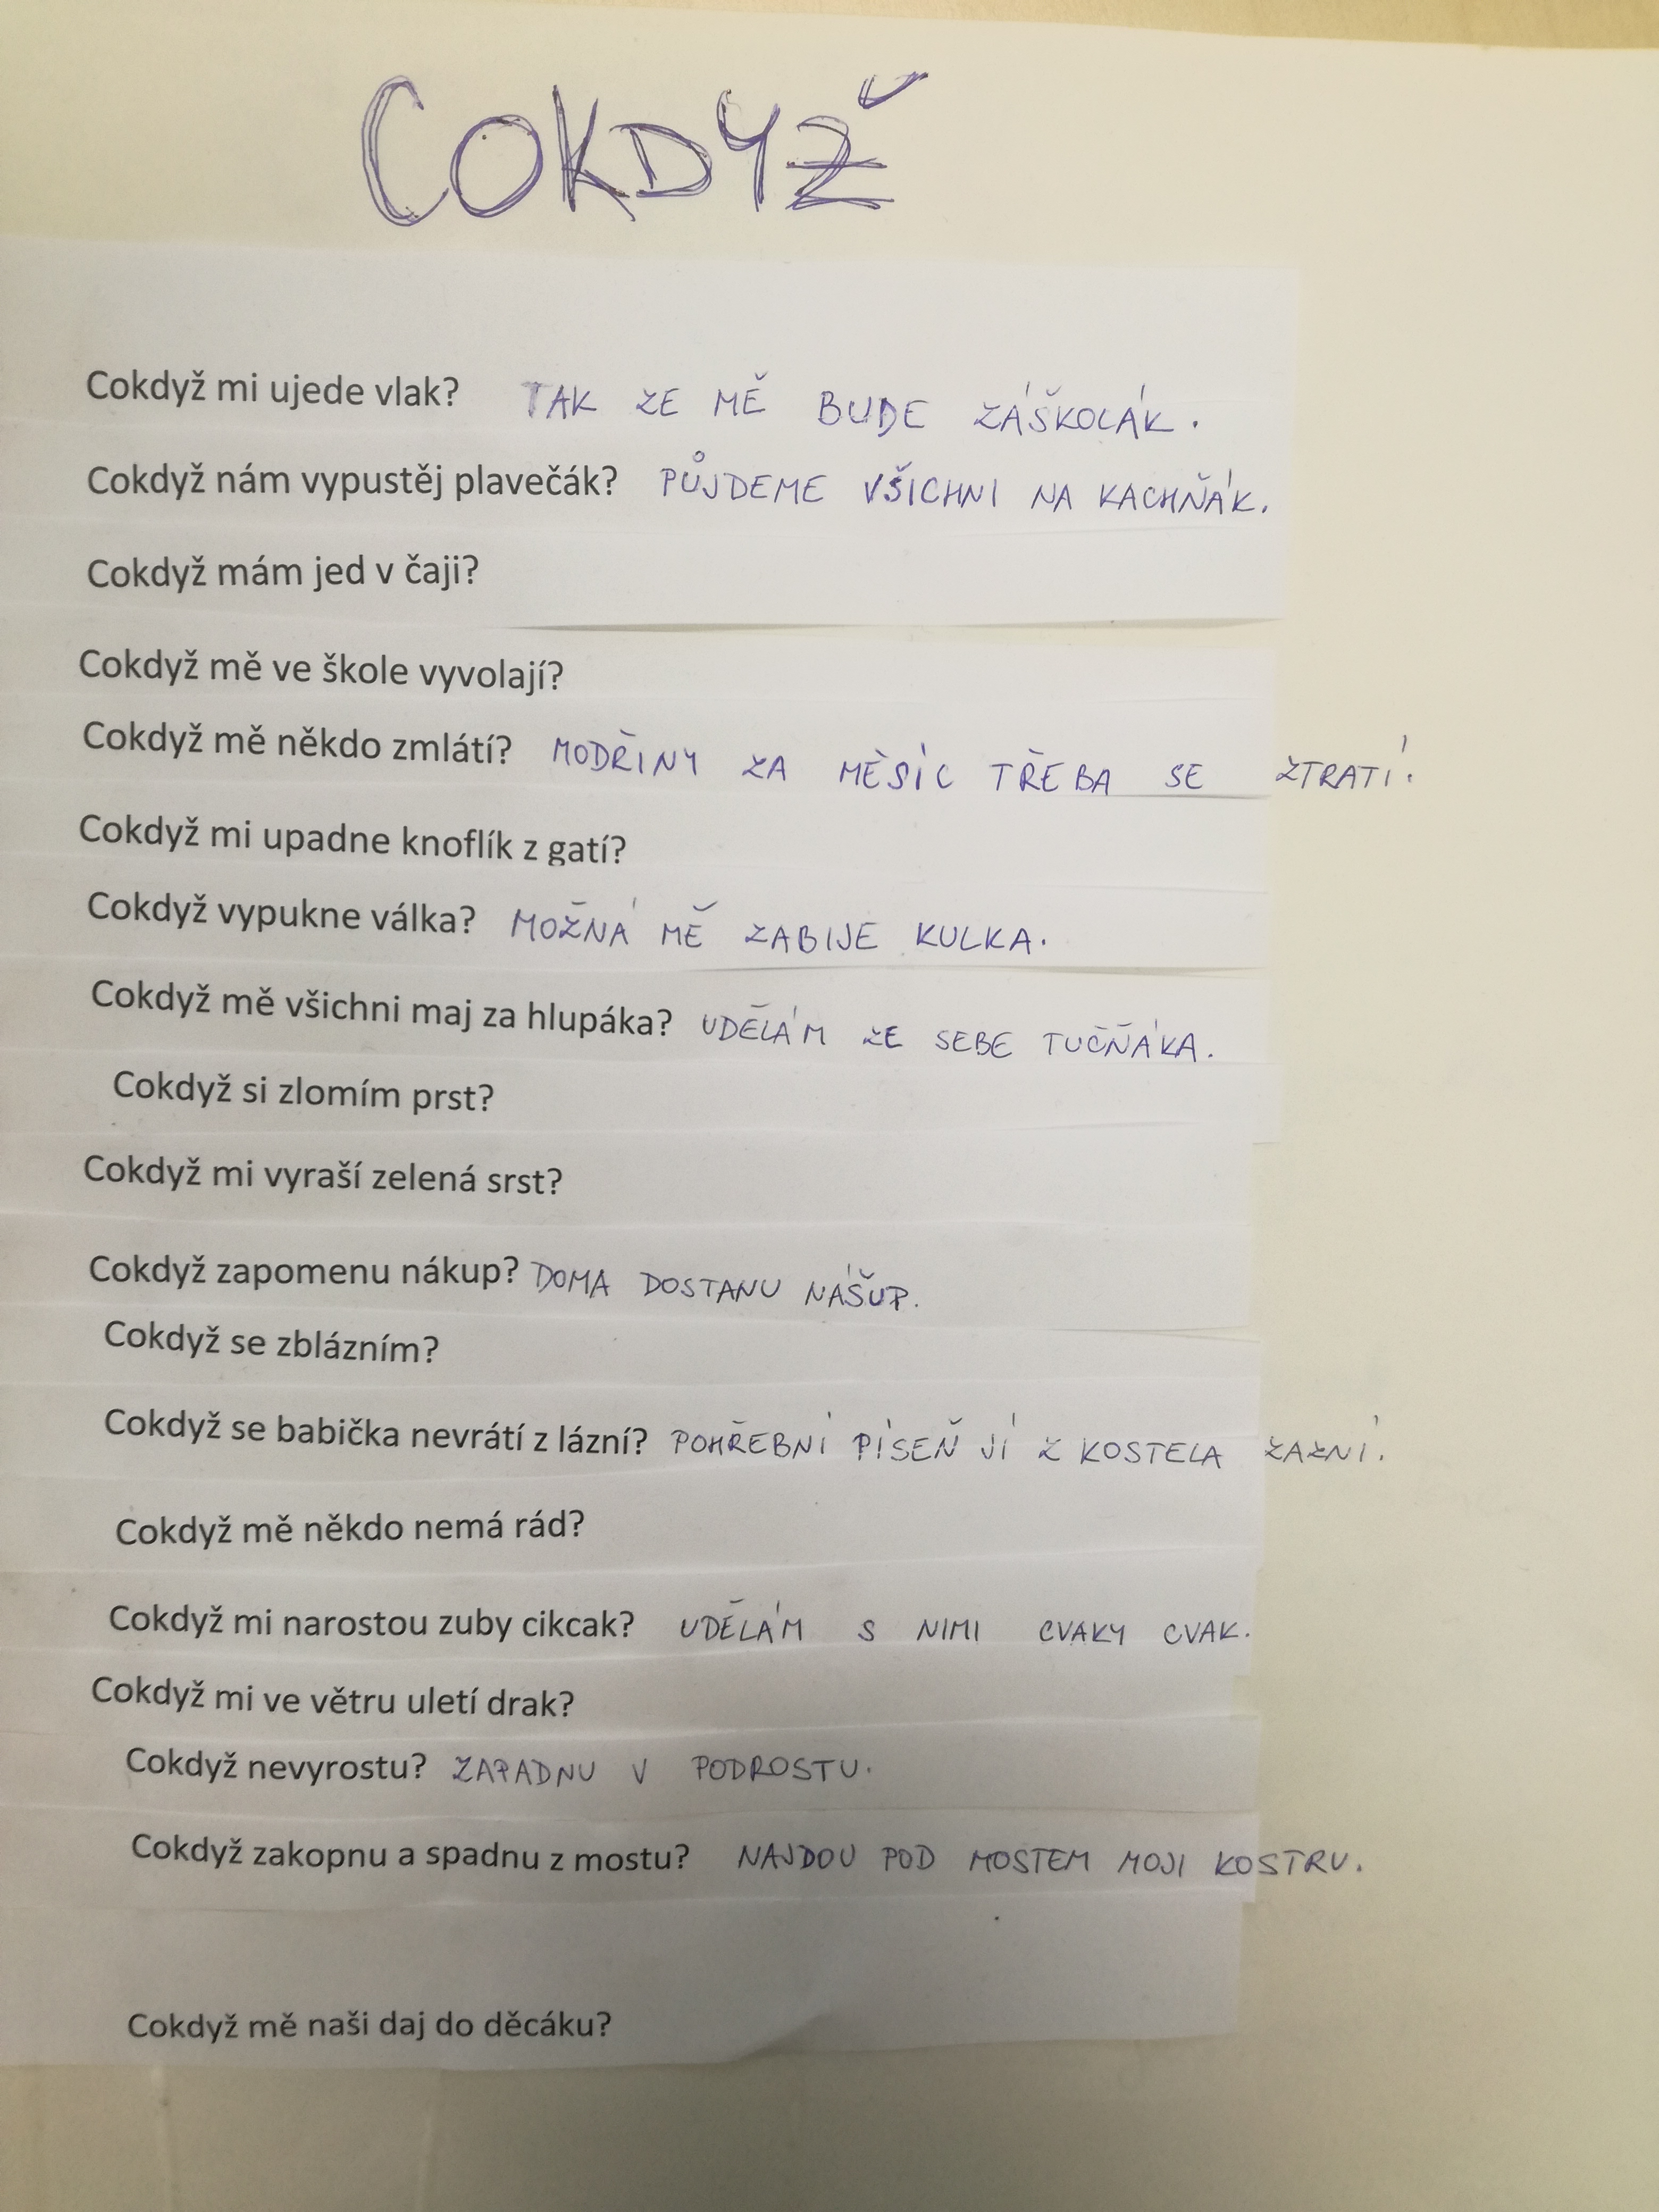 COKDYŽ
Cokdyž mi ujede vlak? TAK ZE MĚ BUDE ZÁŠKOLÁK.
Cokdyž nám vypustěj plavečák? PŮJDEME VŠICHNI NA KACHŇÁK.
Cokdyž mám jed v čaji?
Cokdyž mě ve škole vyvolají?
Cokdyž mě někdo zmlátí? MODŘINY ZA MĚSÍC TŘEBA SE ZTRATÍ.
Cokdyž mi upadne knoflík z gatí?
Cokdyž vypukne válka? MOŽNÁ MĚ ZABIJE KULKA.
Cokdyž mě všichni maj za hlupáka? UDĚLÁM ZE SEBE TUČŇÁKA.
Cokdyž si zlomím prst?
Cokdyž mi vyraší zelená srst?
Cokdyž zapomenu nákup? DOMA DOSTANU NÁŠUP.
Cokdyž se zblázním?
Cokdyž se babička nevrátí z lázní? POHŘEBNÍ PÍSEŇ JÍ Z KOSTELA ZAZNÍ.
Cokdyž mě někdo nemá rád?
Cokdyž mi narostou zuby cikcak? UDĚLÁM S NIMI CVAKY CVAK.
Cokdyž mi ve větru uletí drak?
Cokdyž nevyrostu? ZAPADNU V PODROSTU.
Cokdyž zakopnu a spadnu z mostu? NAJDOU POD MOSTEM MOJI KOSTRU.
Cokdyž mě naši daj do děcáku?